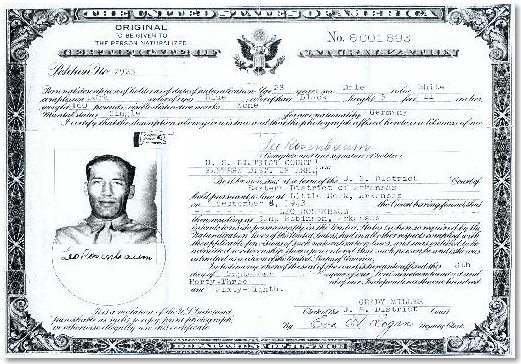 THE UNITED STATES OF AMERICA
ORIGINAL
TO BE GIVEN TO
THE PERSON NATURALIZED
No. 6001893
CERTIFICATE OF NATURALIZATION
Petition No 7923
Personal description of holder as of date of naturalization: Age 28 years; sex Male color White
complexion color of eyes Blue color of hair Black height 5 feet 11 inches;
weight pounds; visible distinctive marks None
Marital status Single former nationality Germany
I certify that the description above given is true, and that the photograph affixed hereto is a likeness of me.
Leo Rosenbaum
(Complete and true signature of holder)
U. S. DISTRICT COURT
EASTERN DIST. OF ARK.
Be it known, that at a term of the U. S. District Court of
Eastern District of Arkansas
held pursuant to law at Little Rock, Arkansas
on September 8, 1943 the Court having found that
LEO ROSENBAUM
then residing at Camp Robinson, Arkansas
intends to reside permanently in the United States
the applicable provisions of such naturalization laws, and was entitled to be
admitted as a citizen of the United States of America.
In testimony whereof the seal of the court is hereunto affixed this 8th
day of September in the year of our Lord nineteen hundred and
Forty-Three
and Sixty-Eighth.
Leo Rosenbaum
It is a violation of the U.S. Code and
punishable as such to copy, print, photograph,
or otherwise illegally use this certificate.
GRADY MILLER
Clerk of the U. S. District Court
By Deputy Clerk
DEPARTMENT OF JUSTICE